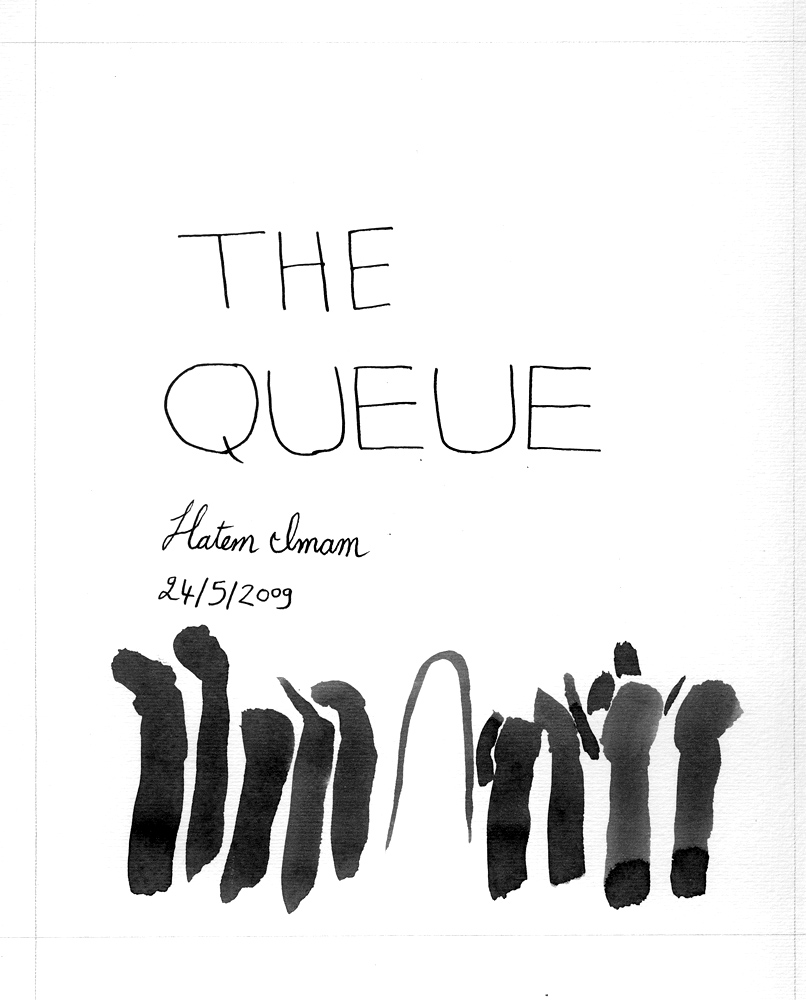 THE
QUEUE
Hatem Imam
24/5/2009